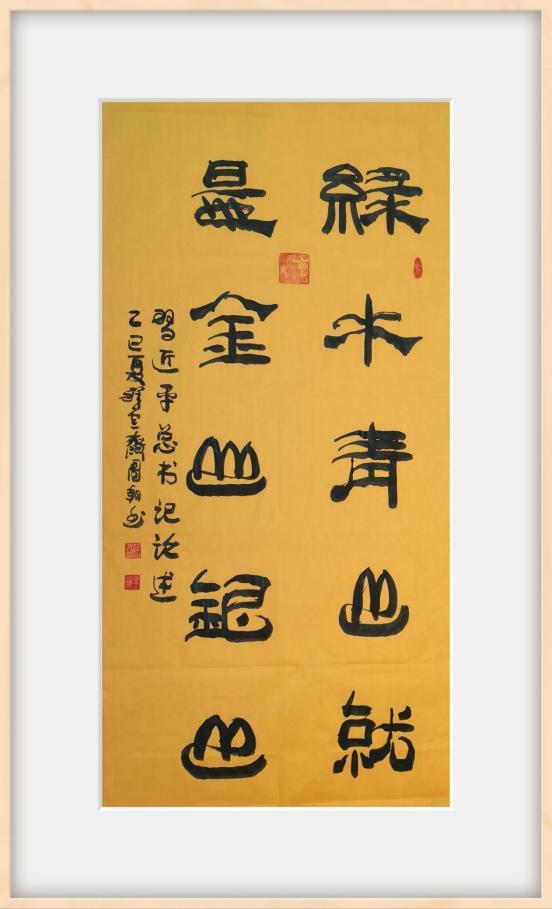 綠水青山就
是金山銀山
習近平总书记论述
乙巳夏